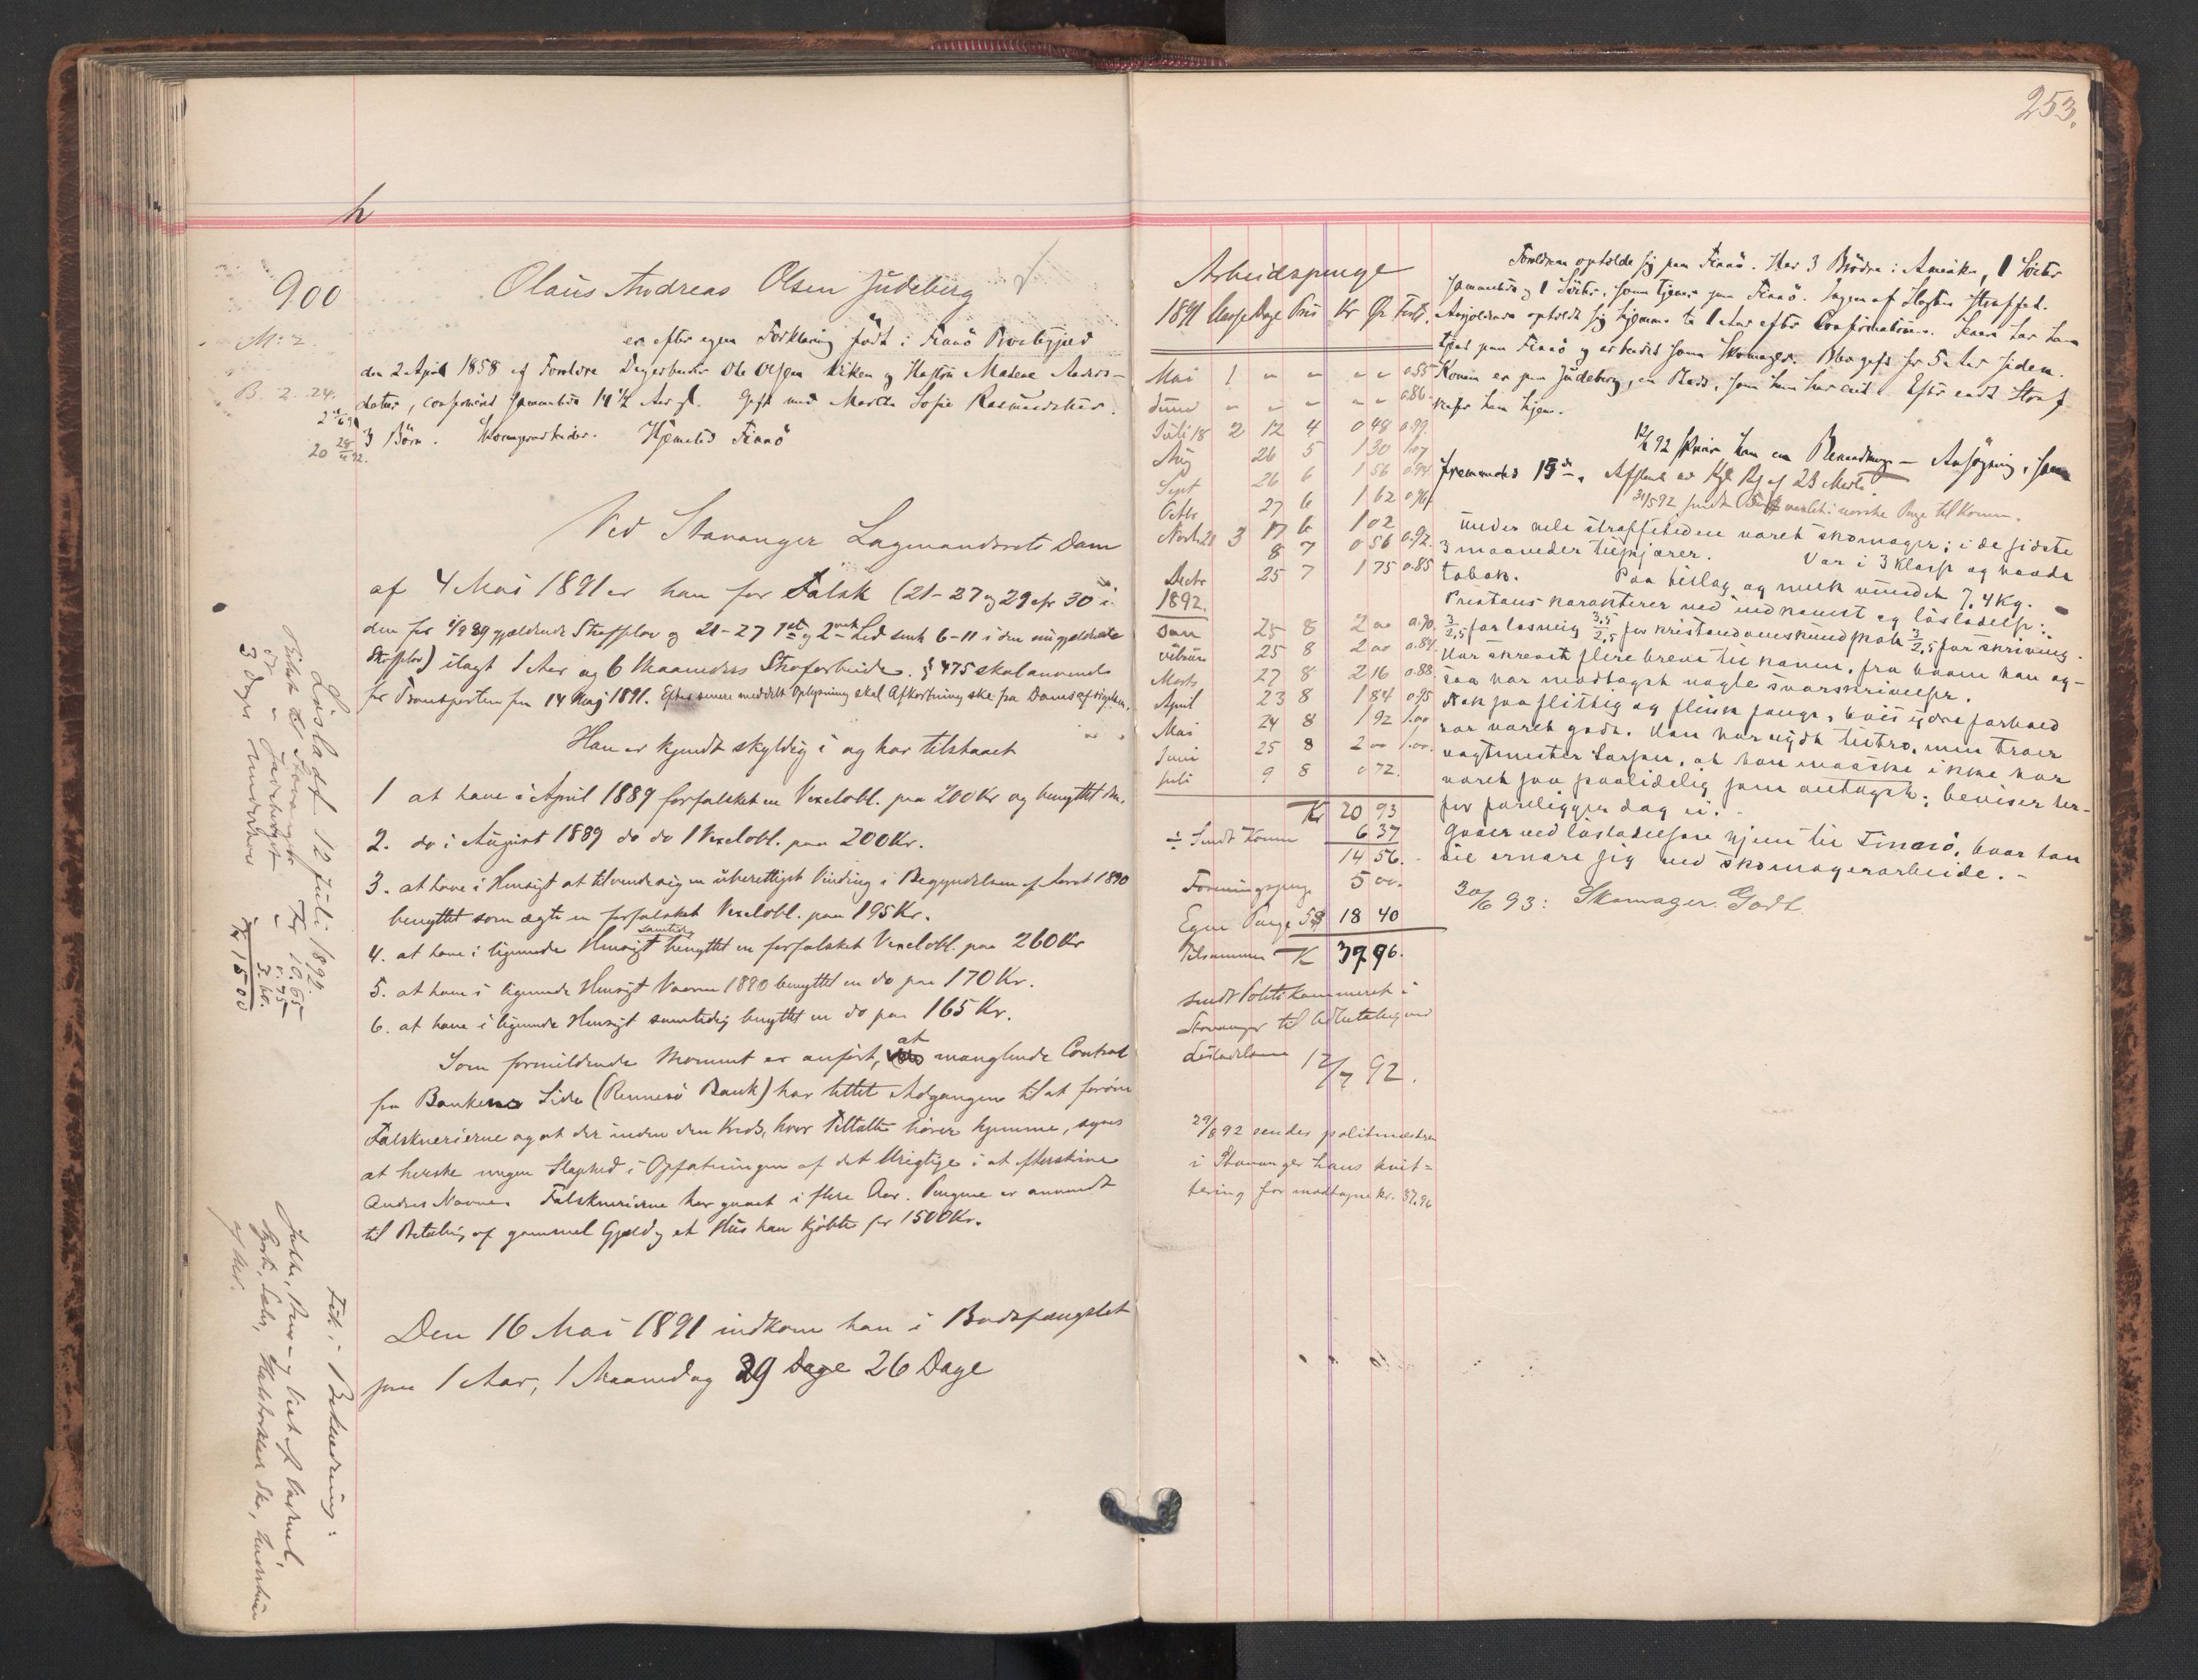 253.
h
900
Olaus Andreas Olsen Judeberg
er efter egen Forklaring født i Finnö Prestegjeld
den 2 April 1858 af Forældre Dagarbeider Ole Olsen Viken og Hustru Malene Anders-
datter, confirmeret sammested 14 1/2 Aar gl. Gift med Martha Sofie Rasmusdatter.
3 Børn. Skomagerarbeider. Hjemsted Finnö
M: 2.
B. 2. 24.
20 28/4 92.
Ved Stavanger Lagmandsrets Dom
af 4 Mai 1891 er han for Falsk (21-27 og 29 cfr 30 i
den før 1/9 89 gjældende Straffelov og 21-27 1ste og 2net Led smh 6-11 i den nugjældende
Straffelov) ilagt 1 Aar og 6 Maaneders Strafarbeide. § 475 skal anvendes
for Transporten fra 14 Maj 1891. Efter senere meddelt Oplysning skal Afkortning ske fra Domsafsigelsen.
Han er kjendt skyldig i og har tilstaaet
1 at have i April 1889 forfalsket en Vexelobl. paa 200 Kr og benyttet den.
2. do i August 1889 do do 1 Vexelobl. paa 200 Kr.
3. at have i Hensigt at tilvende sig en uberettiget Vinding i Begyndelsen af Aaret 1890
benyttet som ægte en forfalsket Vexelobl. paa 195 Kr.
4. at have i lignende Hensigt samtidig benyttet en forfalsket Vexelobl. paa 260 Kr
5. at have i lignende Hensigt Vaaren 1890 benyttet en do paa 170 Kr.
6. at have i lignende Hensigt samtidig benyttet en do paa 165 Kr.
Som formildende Moment er anført, at manglende Control
fra Bankens Side (Rennesö Bank) har lettet Adgangen til at forøve
Falsknerierne og at der inden den Kreds, hvor Tiltalte hører hjemme, synes
at herske nogen Slaphed i Opfatningen af det Urigtige i at efterskrive
Andres Navne. Falsknerierne har gaaet i flere Aar. Pengene er anvendt
til Betaling af gammel Gjæld og et Hus han kjøbte for 1500 Kr.
Den 16 Mai 1891 indkom han i Bodsfængslet
paa 1 Aar, 1 Maaned og 29 Dage 26 Dage
Løsladt 12 Juli 1892.
Billet til Stavanger Kr 10.65
do " Judeberget " 0.75
3 Dages Underhold 3.60.
Kr 15.00
Fik i Beklædning:
Jakke, Buxe og Vest af Vadmel,
Skjorte, Seler, Halstørklæde, Sko,
Arbeidspenge
1891 Klasse Dage Pris Kr Øre Fortj.
Mai 1 " " " " 0.55
Juni " " " " " 0.86
Juli 18 2 12 4 0 48 0.99.
Aug 26 5 1 30 1.07
Sept 26 6 1 56 0.94
Octbr 27 6 1 62 0.96
Novb 20 3 17 6 1 02
8 7 0 56 0.92.
Decbr 25 7 1 75 0.85
1892.
Jan 25 8 2 00 0.90.
Februar 25 8 2 00 0.84.
Marts 27 8 2 16 0.88.
April 23 8 1 84 0.95
Mai 24 8 1 92 1.00
Juni 25 8 2 00 1.00.
Juli 9 8 0 72.
Kr 20 93
÷ Sendt Konen 6 37
14 56.
Foreningspenge 5 00.
Egne Penge 58 18 40
Tilsammen Kr 37.96.
sendt Politikammeret i
Stavanger til Udbetaling ved
Løsladelsen 12/7 92.
29/8 92 sendes politimesteren
i Stavanger hans kvit-
tering for modtagne kr. 37.96
Forældrene opholde sig paa Finnö. Har 3 Brødre i Amerika, 1 Søster
sammesteds og 1 Søster, som tjener paa Finnö. Ingen af Slægten straffet.
Angjældende opholdt sig hjemme til 1 Aar efter Confirmationen. Siden har han
tjent paa Finnö og arbeidet som Skomager. Blev gift for 5 Aar siden.
Konen er paa Judeberg, en Plads, som han har eiet. Efter endt Straf
reiser han hjem.
12/2 92 skriver han en Benaadnings-Ansøgning, som
fremsendes 15de. Afslaaet ved Kgl Res af 23 Marts.
31/5 92 sendt i norske Penge til Konen.
Under hele straffetiden været skomager; i de sidste
3 maaneder tilskjærer. Var i 3 klasse og havde
tobak. Paa tillæg og melk vundet 7,4 Kg.
Prestens karakterer ved indkomst og løsladelse:
3/2,5 for læsning 3,5/2,5 for kristendomskundskab 3/2,5 for skrivning.
Har skrevet flere breve til konen, fra hvem han og-
saa har modtaget nogle svarskrivelser.
Nok saa flittig og flink fange, hvis ydre forhold
har været godt. Han har nydt tiltro, men troer
vagtmester Larsen, at han maaske ikke har
været saa paalidelig som antaget; beviser her-
for foreligger dog ei.-
Gaaer ved løsladelsen hjem til Finnö, hvor han
vil ernære sig ved skomagerarbeide.-
30/6 93: Skomager. Godt.